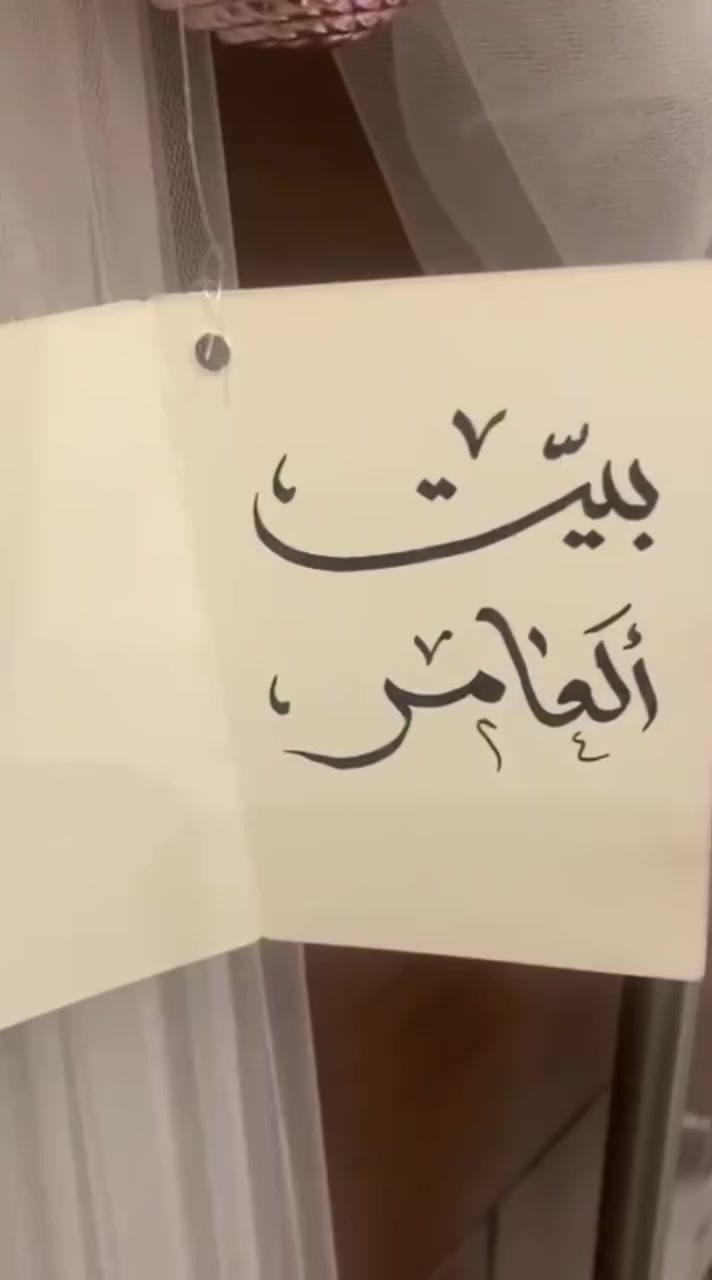 بيّت
ألعامر